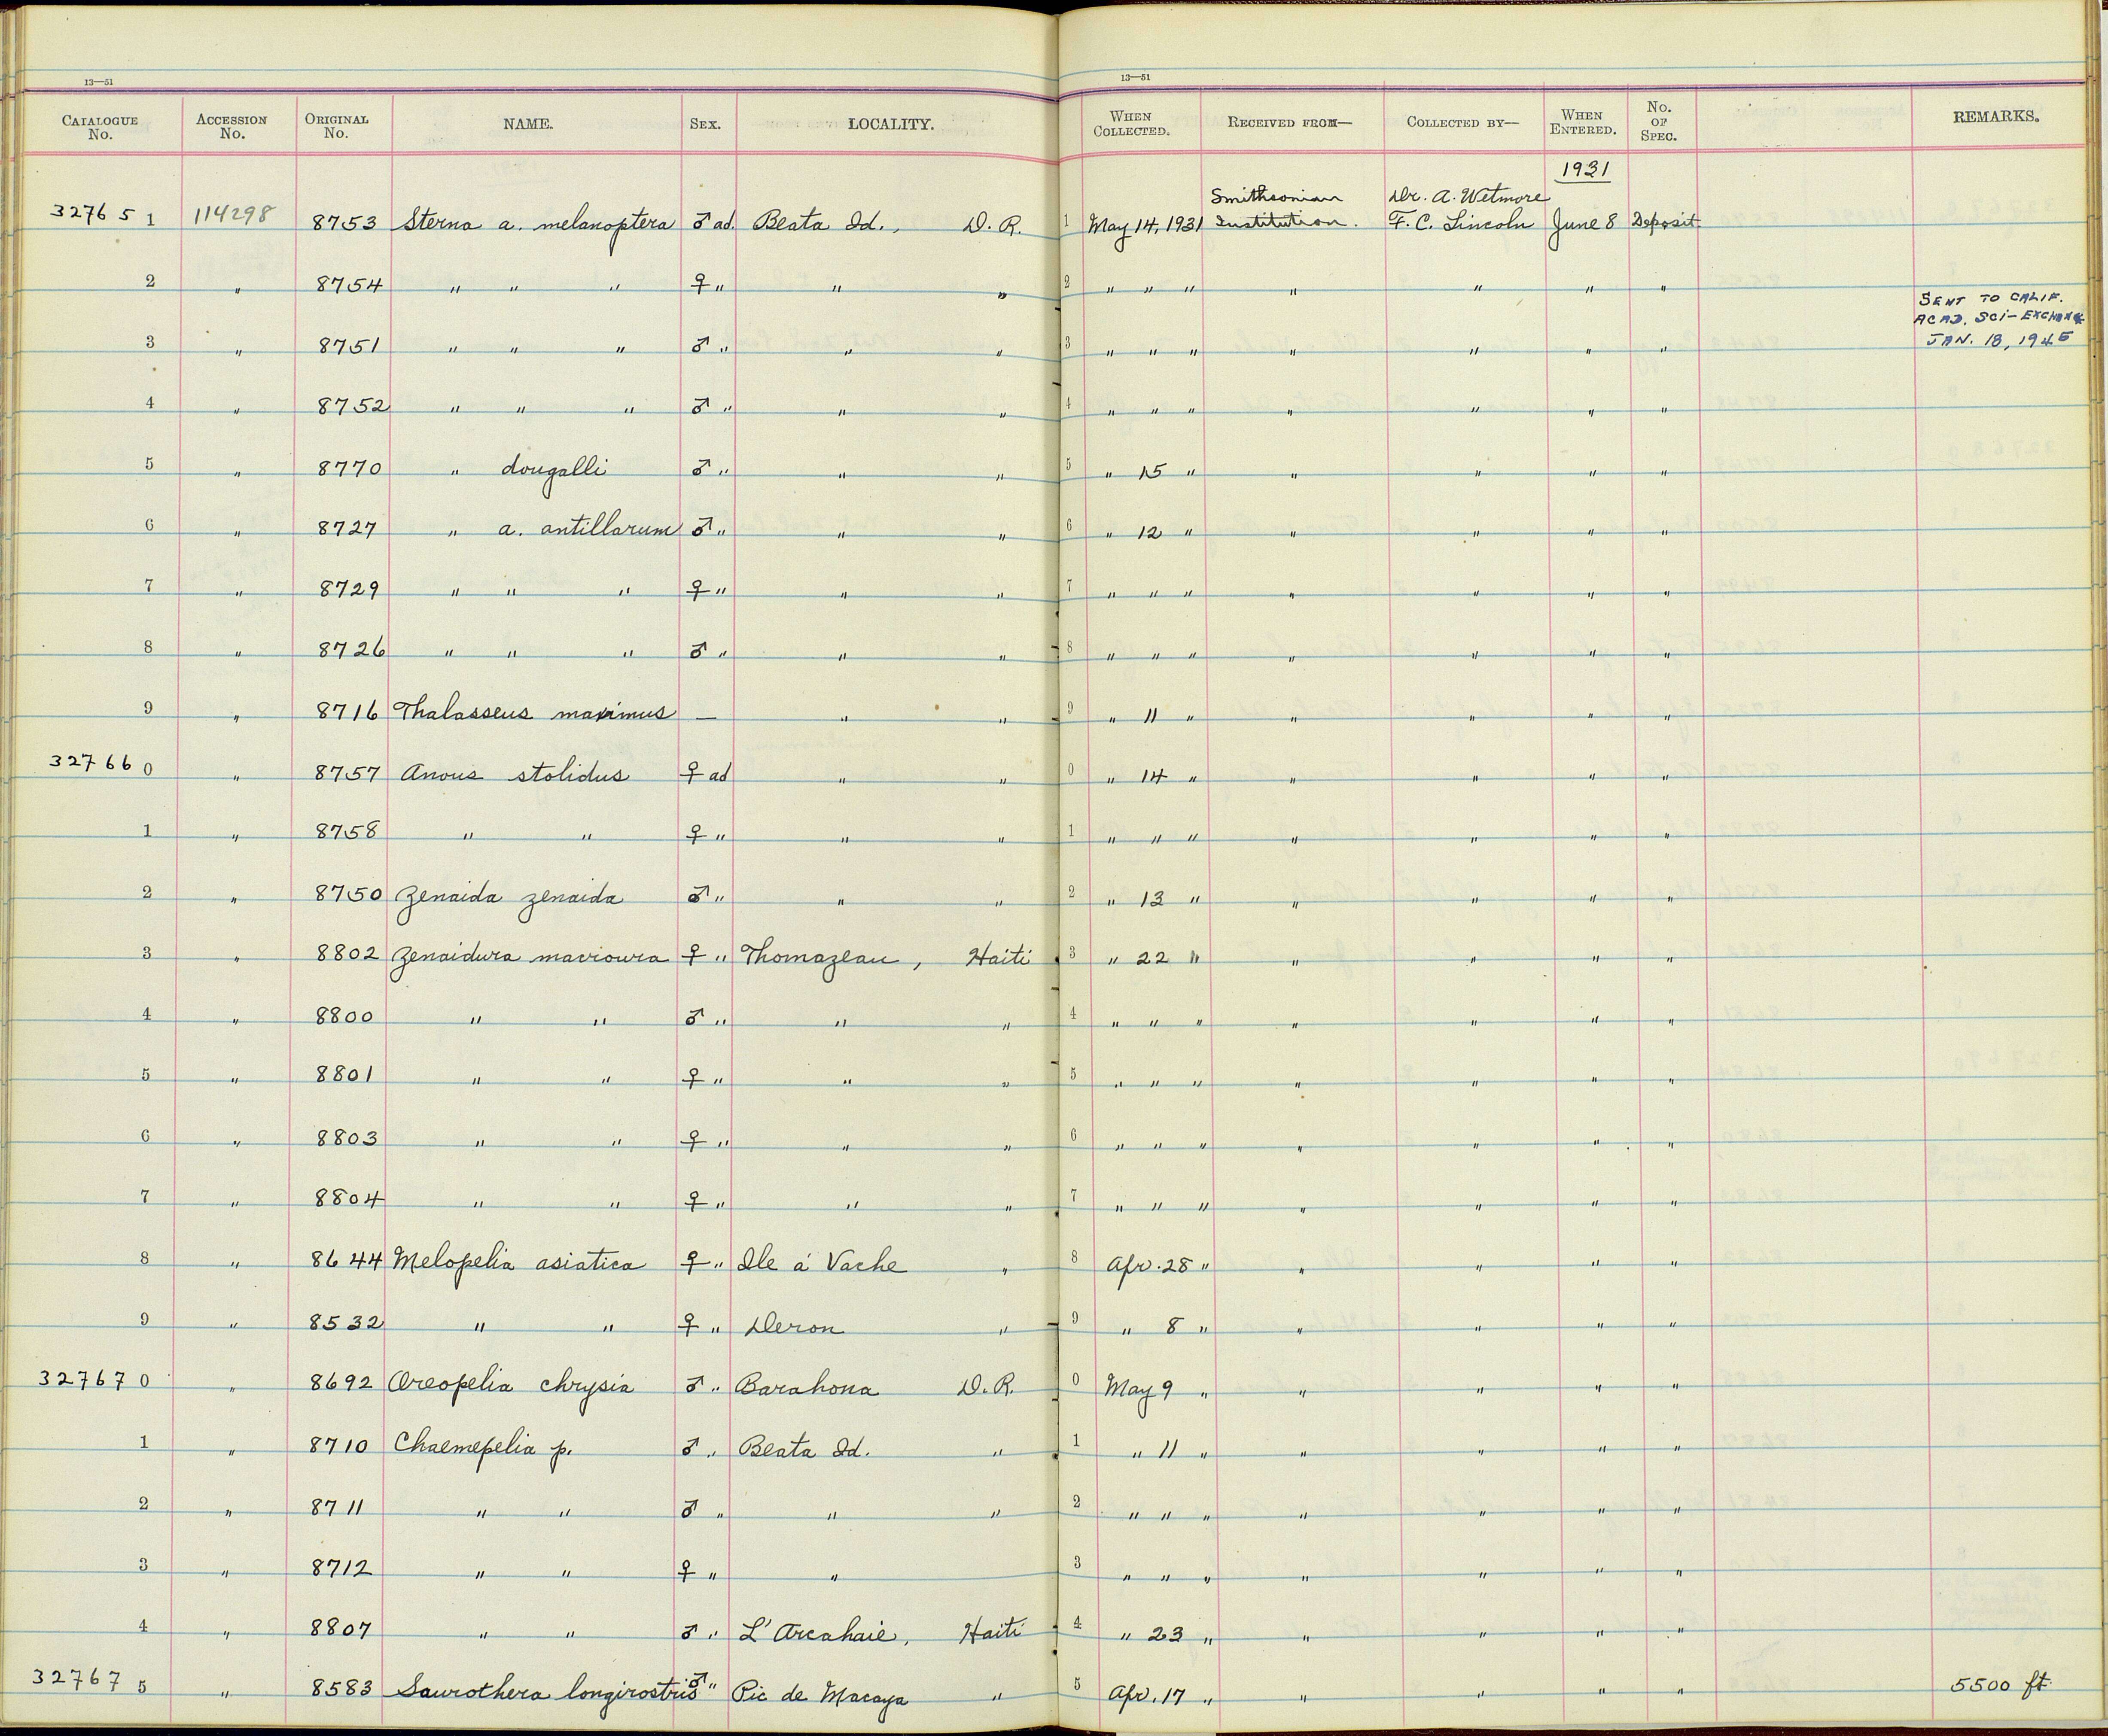 13—51 13—51
CATALOGUE No. ACCESSION No. ORIGINAL No. NAME. SEX. LOCALITY. WHEN COLLECTED. RECEIVED FROM— COLLECTED BY— WHEN ENTERED. No. OF SPEC. REMARKS.
1931
Smithsonian Dr. A. Wetmore
32765 1 114298 8753 Sterna a. melanoptera ♂ ad. Beata Id., D. R. 1 May 14, 1931 Institution. F. C. Lincoln June 8 Deposit
2 " 8754 " " " ♀ " " " 2 " " " " " " "
SENT TO CALIF.
ACAD. SCI— EXCHANGE
3 " 8751 " " " ♂ " " " 3 " " " " " " " JAN. 18, 1945
4 " 8752 " " " ♂ " " " 4 " " " " " " "
5 " 8770 " dougalli ♂ " " " 5 " 15 " " " " "
6 " 8727 " a. antillarum ♂ " " " 6 " 12 " " " " "
7 " 8729 " " " ♀ " " " 7 " " " " " " "
8 " 8726 " " " ♂ " " " 8 " " " " " " "
9 " 8716 Thalasseus maximus — " " 9 " 11 " " " " "
32766 0 " 8757 Anous stolidus ♀ ad " " 0 " 14 " " " " "
1 " 8758 " " ♀ " " " 1 " " " " " " "
2 " 8750 Zenaida zenaida ♂ " " " 2 " 13 " " " " "
3 " 8802 Zenaidura macroura ♀ " Thomazeau, Haiti 3 " 22 " " " " "
4 " 8800 " " ♂ " " " 4 " " " " " " "
5 " 8801 " " ♀ " " " 5 " " " " " " "
6 " 8803 " " ♀ " " " 6 " " " " " " "
7 " 8804 " " ♀ " " " 7 " " " " " " "
8 " 8644 Melopelia asiatica ♀ " Ile á Vache " 8 Apr. 28 " " " " "
9 " 8532 " " ♀ " Deron " 9 " 8 " " " " "
32767 0 " 8692 Oreopelia chrysia ♂ " Barahona D. R. 0 May 9 " " " " "
1 " 8710 Chaemepelia p. ♂ " Beata Id. " 1 " 11 " " " " "
2 " 8711 " " ♂ " " " 2 " " " " " " "
3 " 8712 " " ♀ " " 3 " " " " " " "
4 " 8807 " " ♂ " L'Arcahaie, Haiti 4 " 23 " " " " "
32767 5 " 8583 Saurothera longirostris ♂ " Pic de Macaya " 5 Apr. 17 " " " " " 5500 ft.